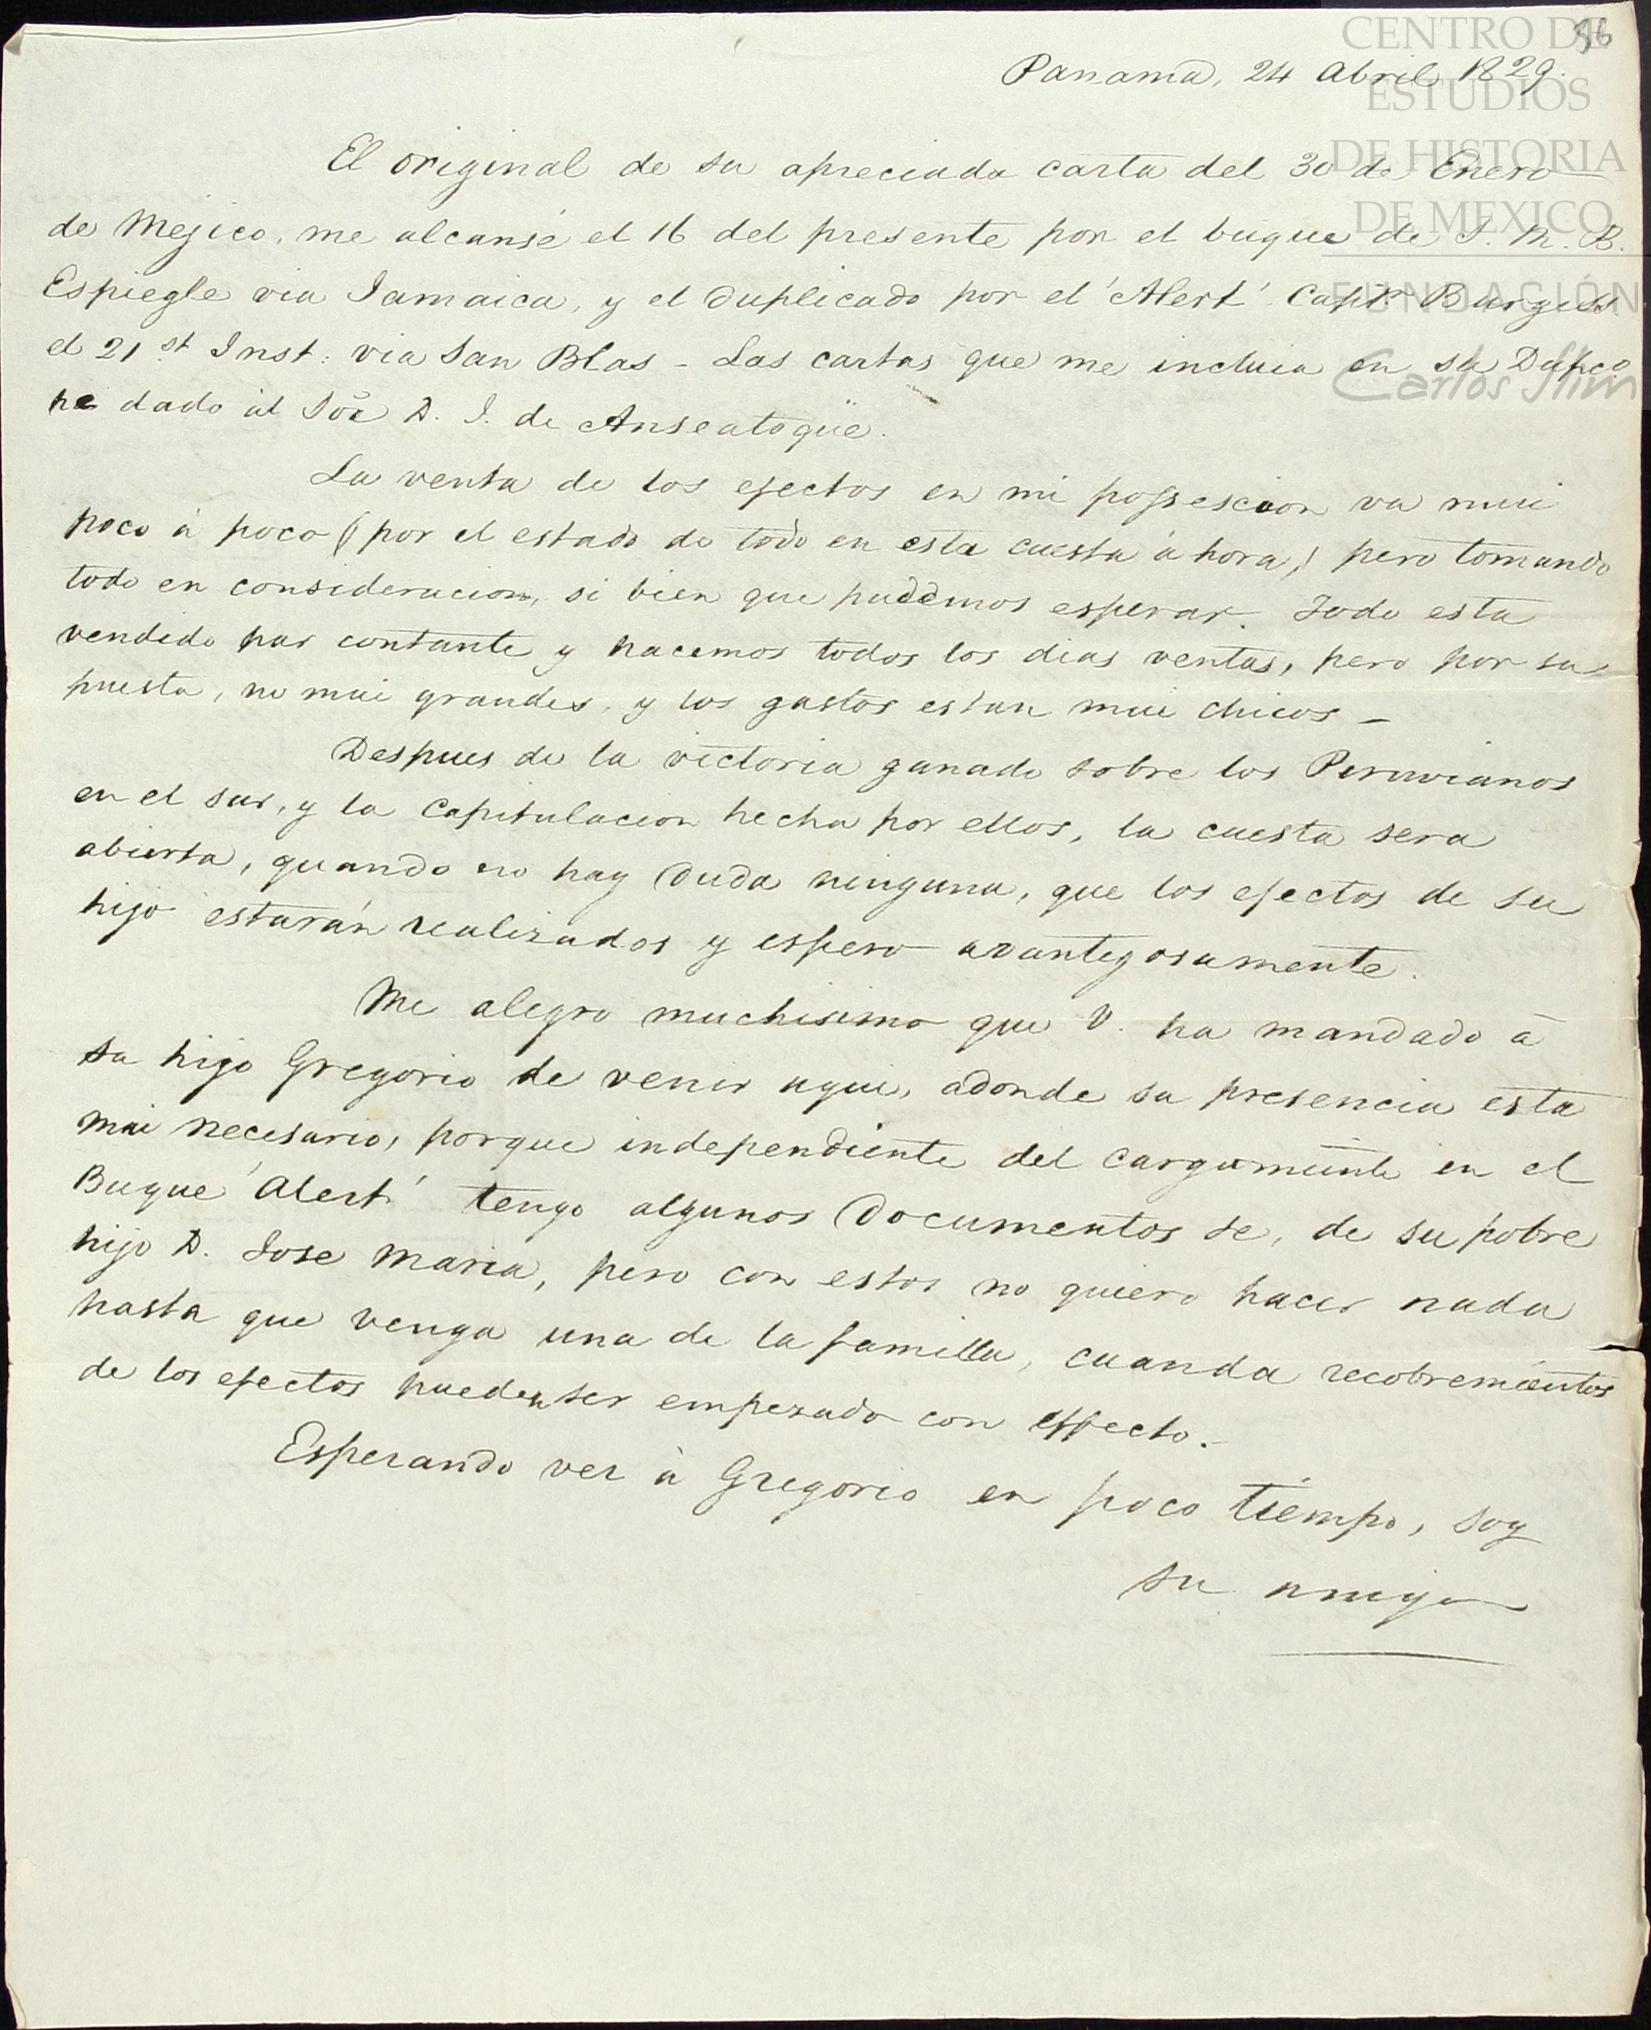 56
CENTRO DE
ESTUDIOS
DE HISTORIA
DE MEXICO
FUNDACIÓN
Carlos Slim
Panamá, 24 Abril 1829.
El original de su apreciada carta del 30 de Enero
de Mejico, me alcansé el 16 del presente por el buque de S. M. B.
Espiegle via Jamaica, y el duplicado por el 'Alert' Captn Burgess
el 21st Inst: via San Blas - Las cartas que me incluia en su Dupco
he dado al Sõr D. J. de Anseatogüe.
La venta de los efectos en mi possescion va mui
poco á poco (por el estado de todo en esta cuesta áhora,) pero tomando
todo en consideracion, si bien que puddemos esperar. Todo esta
vendido par contante y hacemos todos los dias ventas, pero por su
puesta, no mui grandes, y los gastos estan mui chicos -
Despues de la victoria ganado sobre los Peruvianos
en el sur, y la capitulacion hecha por ellos, la cuesta sera
abierta, quando no hay duda ninguna, que los efectos de su
hijo estarán realizados y espero avantegosamente.
Me alegro muchisimo que V. ha mandado á
su hijo Gregorio de venir aqui, adonde su presencia esta
mui necesario, porque independiente del cargamiento en el
Buque 'Alert' tengo algunos documentos de, de su pobre
hijo D. Jose Maria, pero con estos no quiero hacer nada
hasta que venga una de la familla, cuanda recobremientos
de los efectos pueden ser empezado con effecto.
Esperando ver à Gregorio en poco tiempo, soy
su amigo